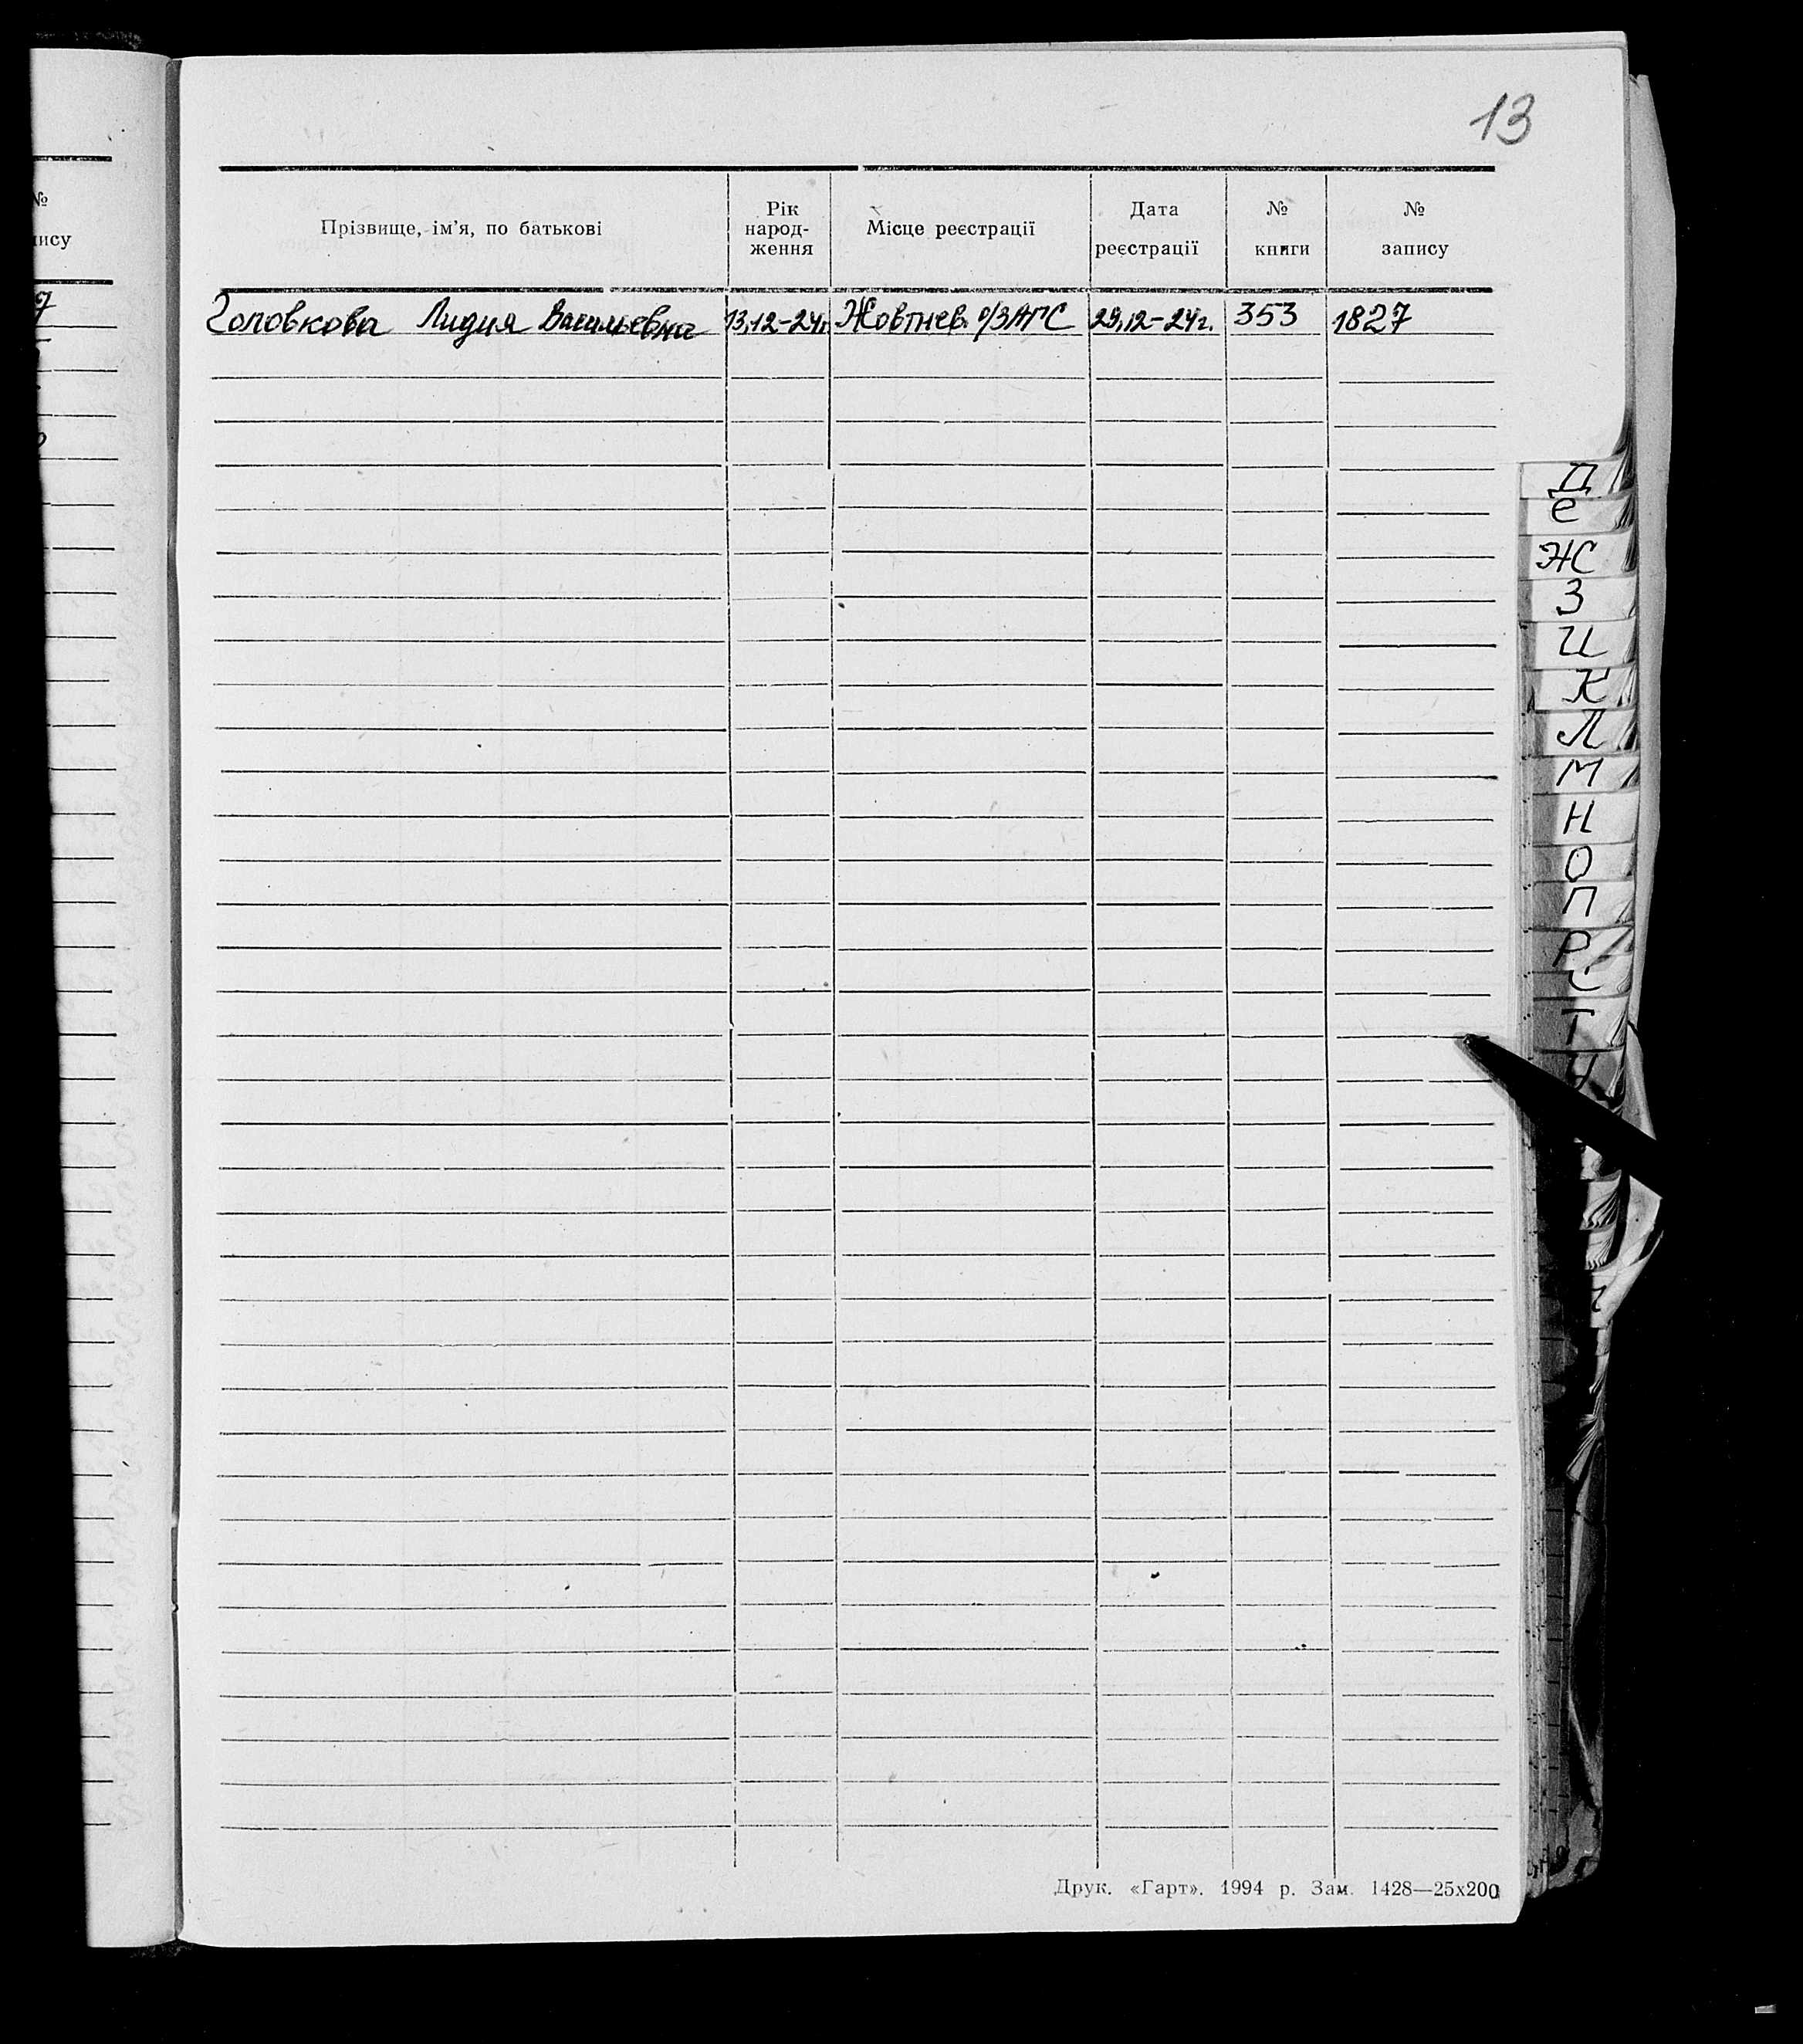 13
№
пису
7
Прізвище, ім'я, по батькові
Рік народ- ження
Місце реєстрації
Дата реєстрації
№ книги
№ запису
Головкова Лидия Васильевна 13.12-24г. Жовтнев. о/ЗАГС 29.12-24г. 353 1827
Д
Е
Ж
З
И
К
Л
М
Н
О
П
Р
С
Т
Друк. «Гарт». 1994 р. Зам. 1428—25х200